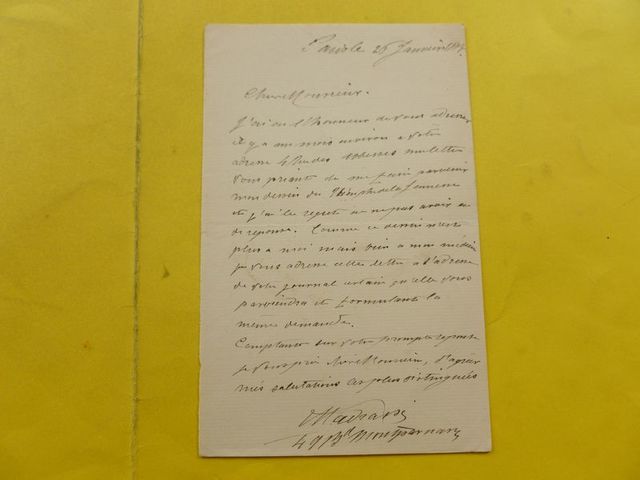 Paris le 26 Janvier
Cher Monsieur.
J'ai eu l'honneur de vous adresser
il y a un mois environ à votre
adresse 4 Rue des une lettre
vous priant de me faire parvenir
mon dessin du de la Jeunesse
et j'ai le regret de ne pas avoir eu
de reponse. Comme ce dessin n'est
plus a moi mais bien a mon
je vous adresse cette lettre a l'adresse
de votre journal certain qu'elle vous
parviendra et formulant la
meme demande.
Comptant sur votre prompte reponse
je vous prie Monsieur, d'agréer
mes salutations les plus distinguées
49 Bd Montparnasse